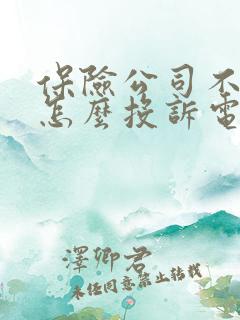 保險公司不
怎麼投訴電
澤卿君
未經同意禁止轉載